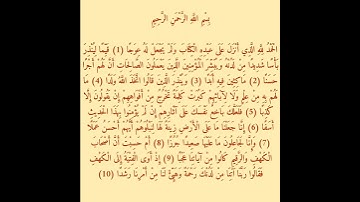 بِسْمِ اللَّهِ الرَّحْمَنِ الرَّحِيمِ
الْحَمْدُ لِلَّهِ الَّذِي أَنْزَلَ عَلَى عَبْدِهِ الْكِتَابَ وَلَمْ يَجْعَلْ لَهُ عِوَجًا (1) قَيِّمًا لِيُنْذِرَ
بَأْسًا شَدِيدًا مِنْ لَدُنْهُ وَيُبَشِّرَ الْمُؤْمِنِينَ الَّذِينَ يَعْمَلُونَ الصَّالِحَاتِ أَنَّ لَهُمْ أَجْرًا
حَسَنًا (2) مَاكِثِينَ فِيهِ أَبَدًا (3) وَيُنْذِرَ الَّذِينَ قَالُوا اتَّخَذَ اللَّهُ وَلَدًا (4) مَا
لَهُمْ بِهِ مِنْ عِلْمٍ وَلَا لِآبَائِهِمْ كَبُرَتْ كَلِمَةً تَخْرُجُ مِنْ أَفْوَاهِهِمْ إِنْ يَقُولُونَ إِلَّا
كَذِبًا (5) فَلَعَلَّكَ بَاخِعٌ نَفْسَكَ عَلَى آثَارِهِمْ إِنْ لَمْ يُؤْمِنُوا بِهَذَا الْحَدِيثِ
أَسَفًا (6) إِنَّا جَعَلْنَا مَا عَلَى الْأَرْضِ زِينَةً لَهَا لِنَبْلُوَهُمْ أَيُّهُمْ أَحْسَنُ عَمَلًا
(7) وَإِنَّا لَجَاعِلُونَ مَا عَلَيْهَا صَعِيدًا جُرُزًا (8) أَمْ حَسِبْتَ أَنَّ أَصْحَابَ
الْكَهْفِ وَالرَّقِيمِ كَانُوا مِنْ آيَاتِنَا عَجَبًا (9) إِذْ أَوَى الْفِتْيَةُ إِلَى الْكَهْفِ
فَقَالُوا رَبَّنَا آتِنَا مِنْ لَدُنْكَ رَحْمَةً وَهَيِّئْ لَنَا مِنْ أَمْرِنَا رَشَدًا (10)